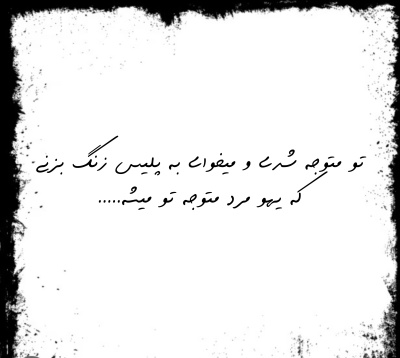 تو متوجه شدی و میخوای به پلیس زنگ بزنی
که یهو مرد متوجه تو میشه.....